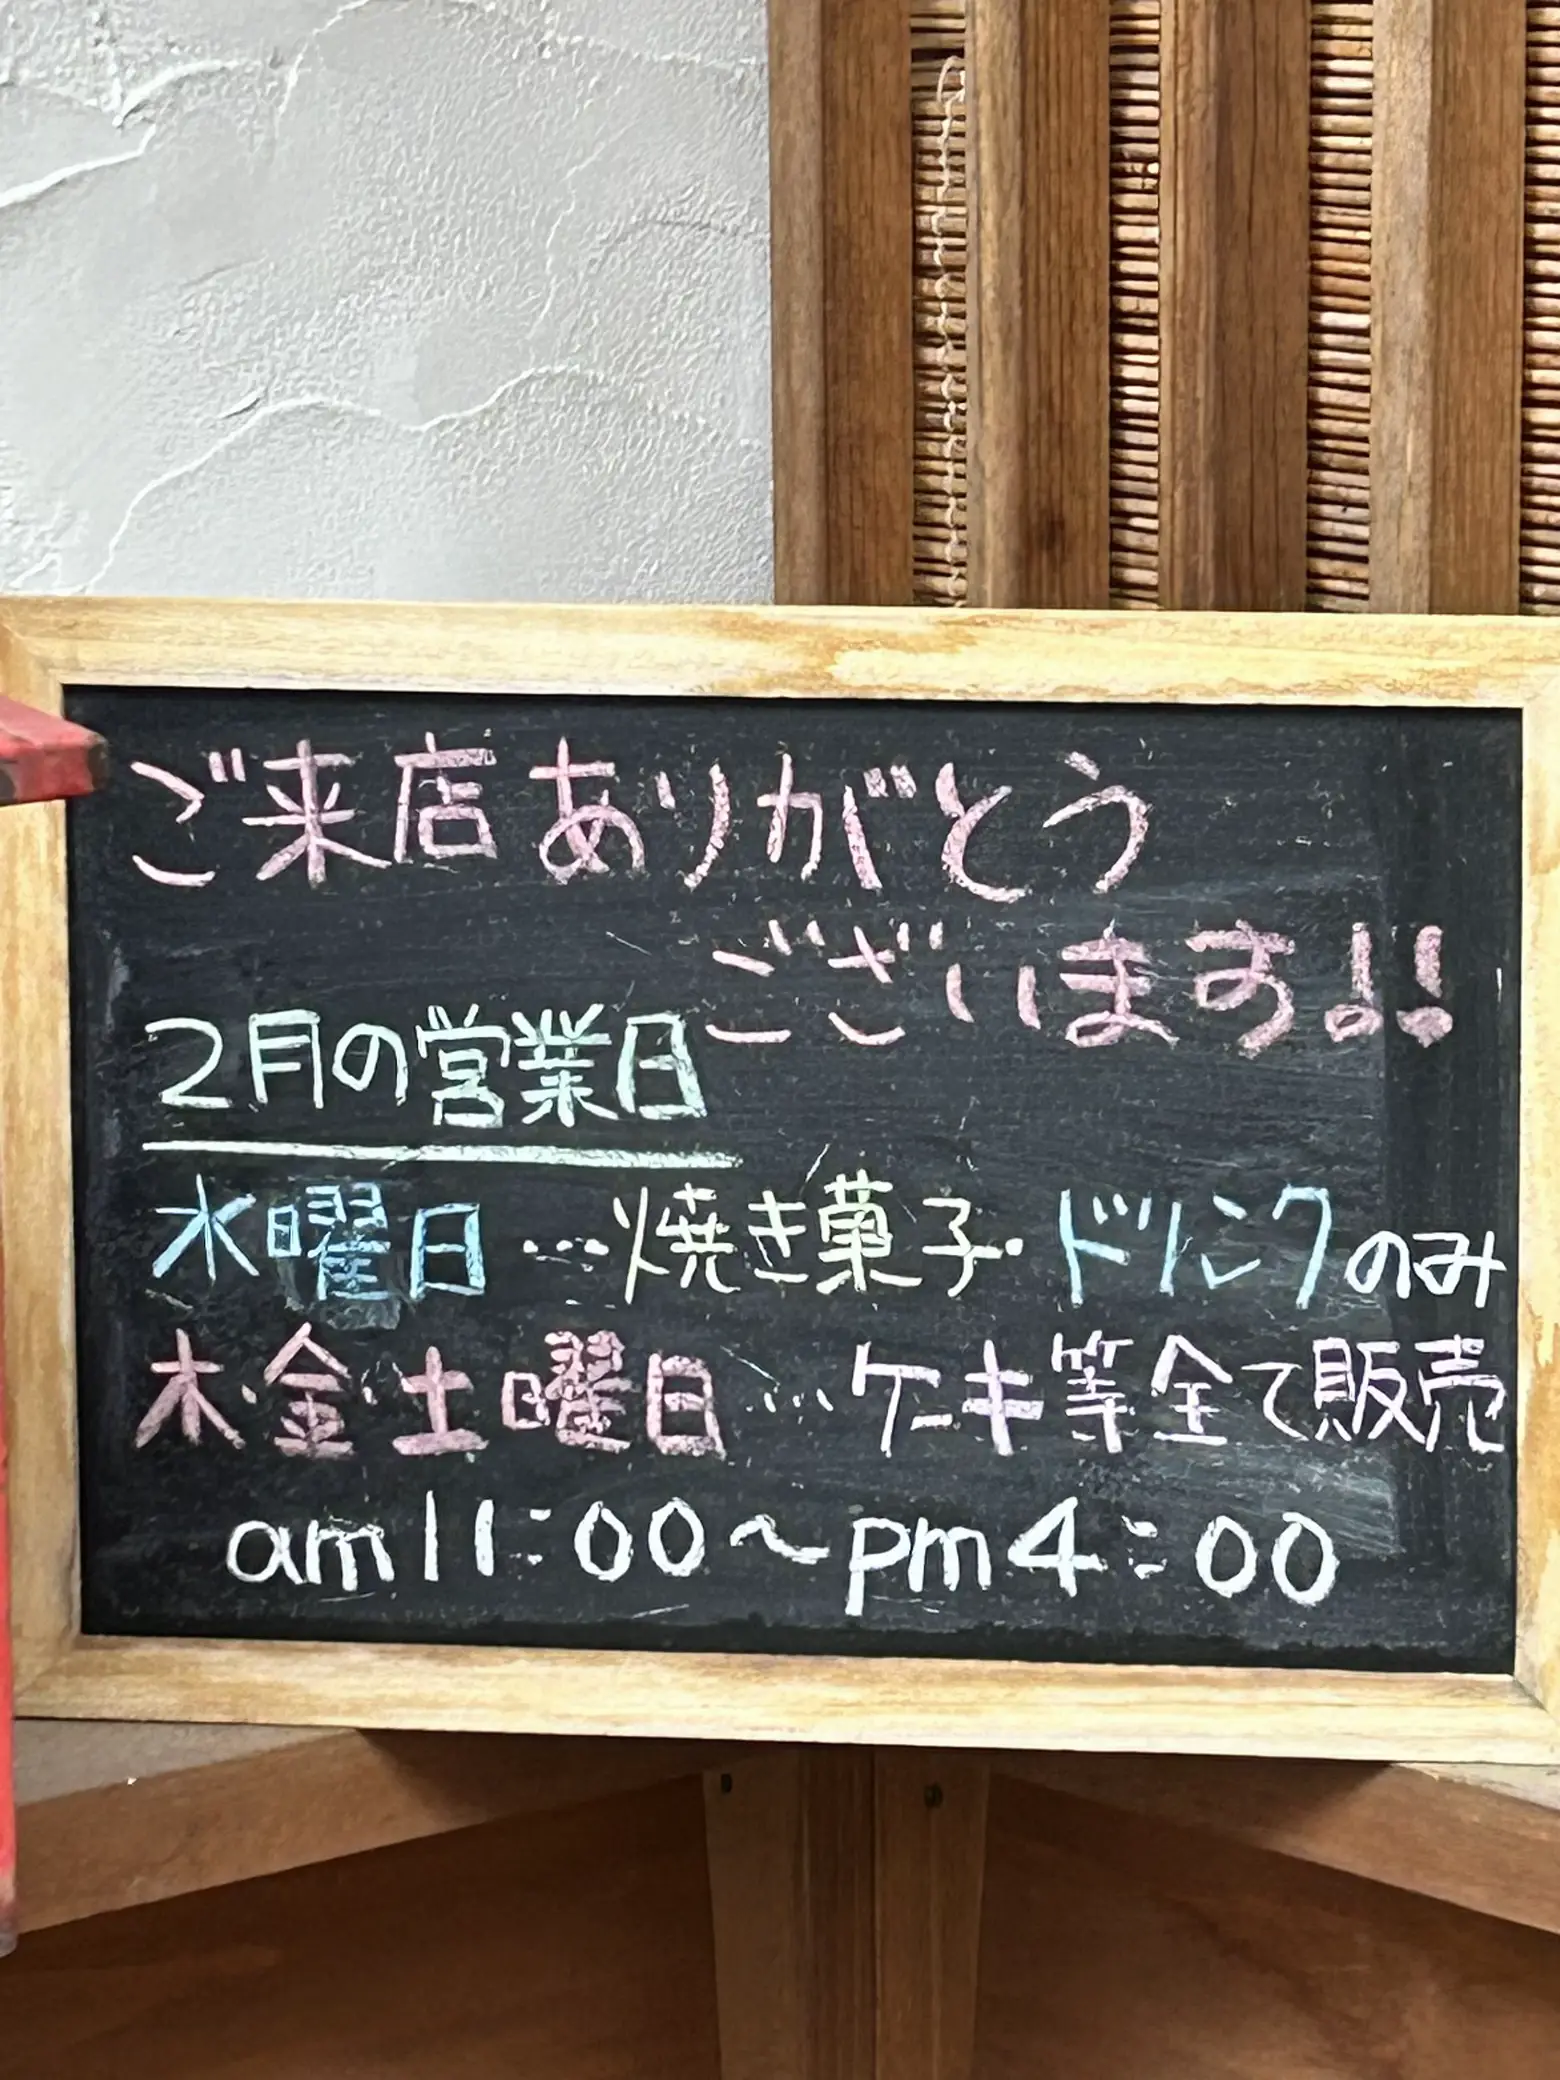 ご来店ありがとう
ございます!!
2月の営業日
水曜日…焼き菓子・ドリンクのみ
木・金・土曜日…ケーキ等全て販売
am11:00〜pm4:00